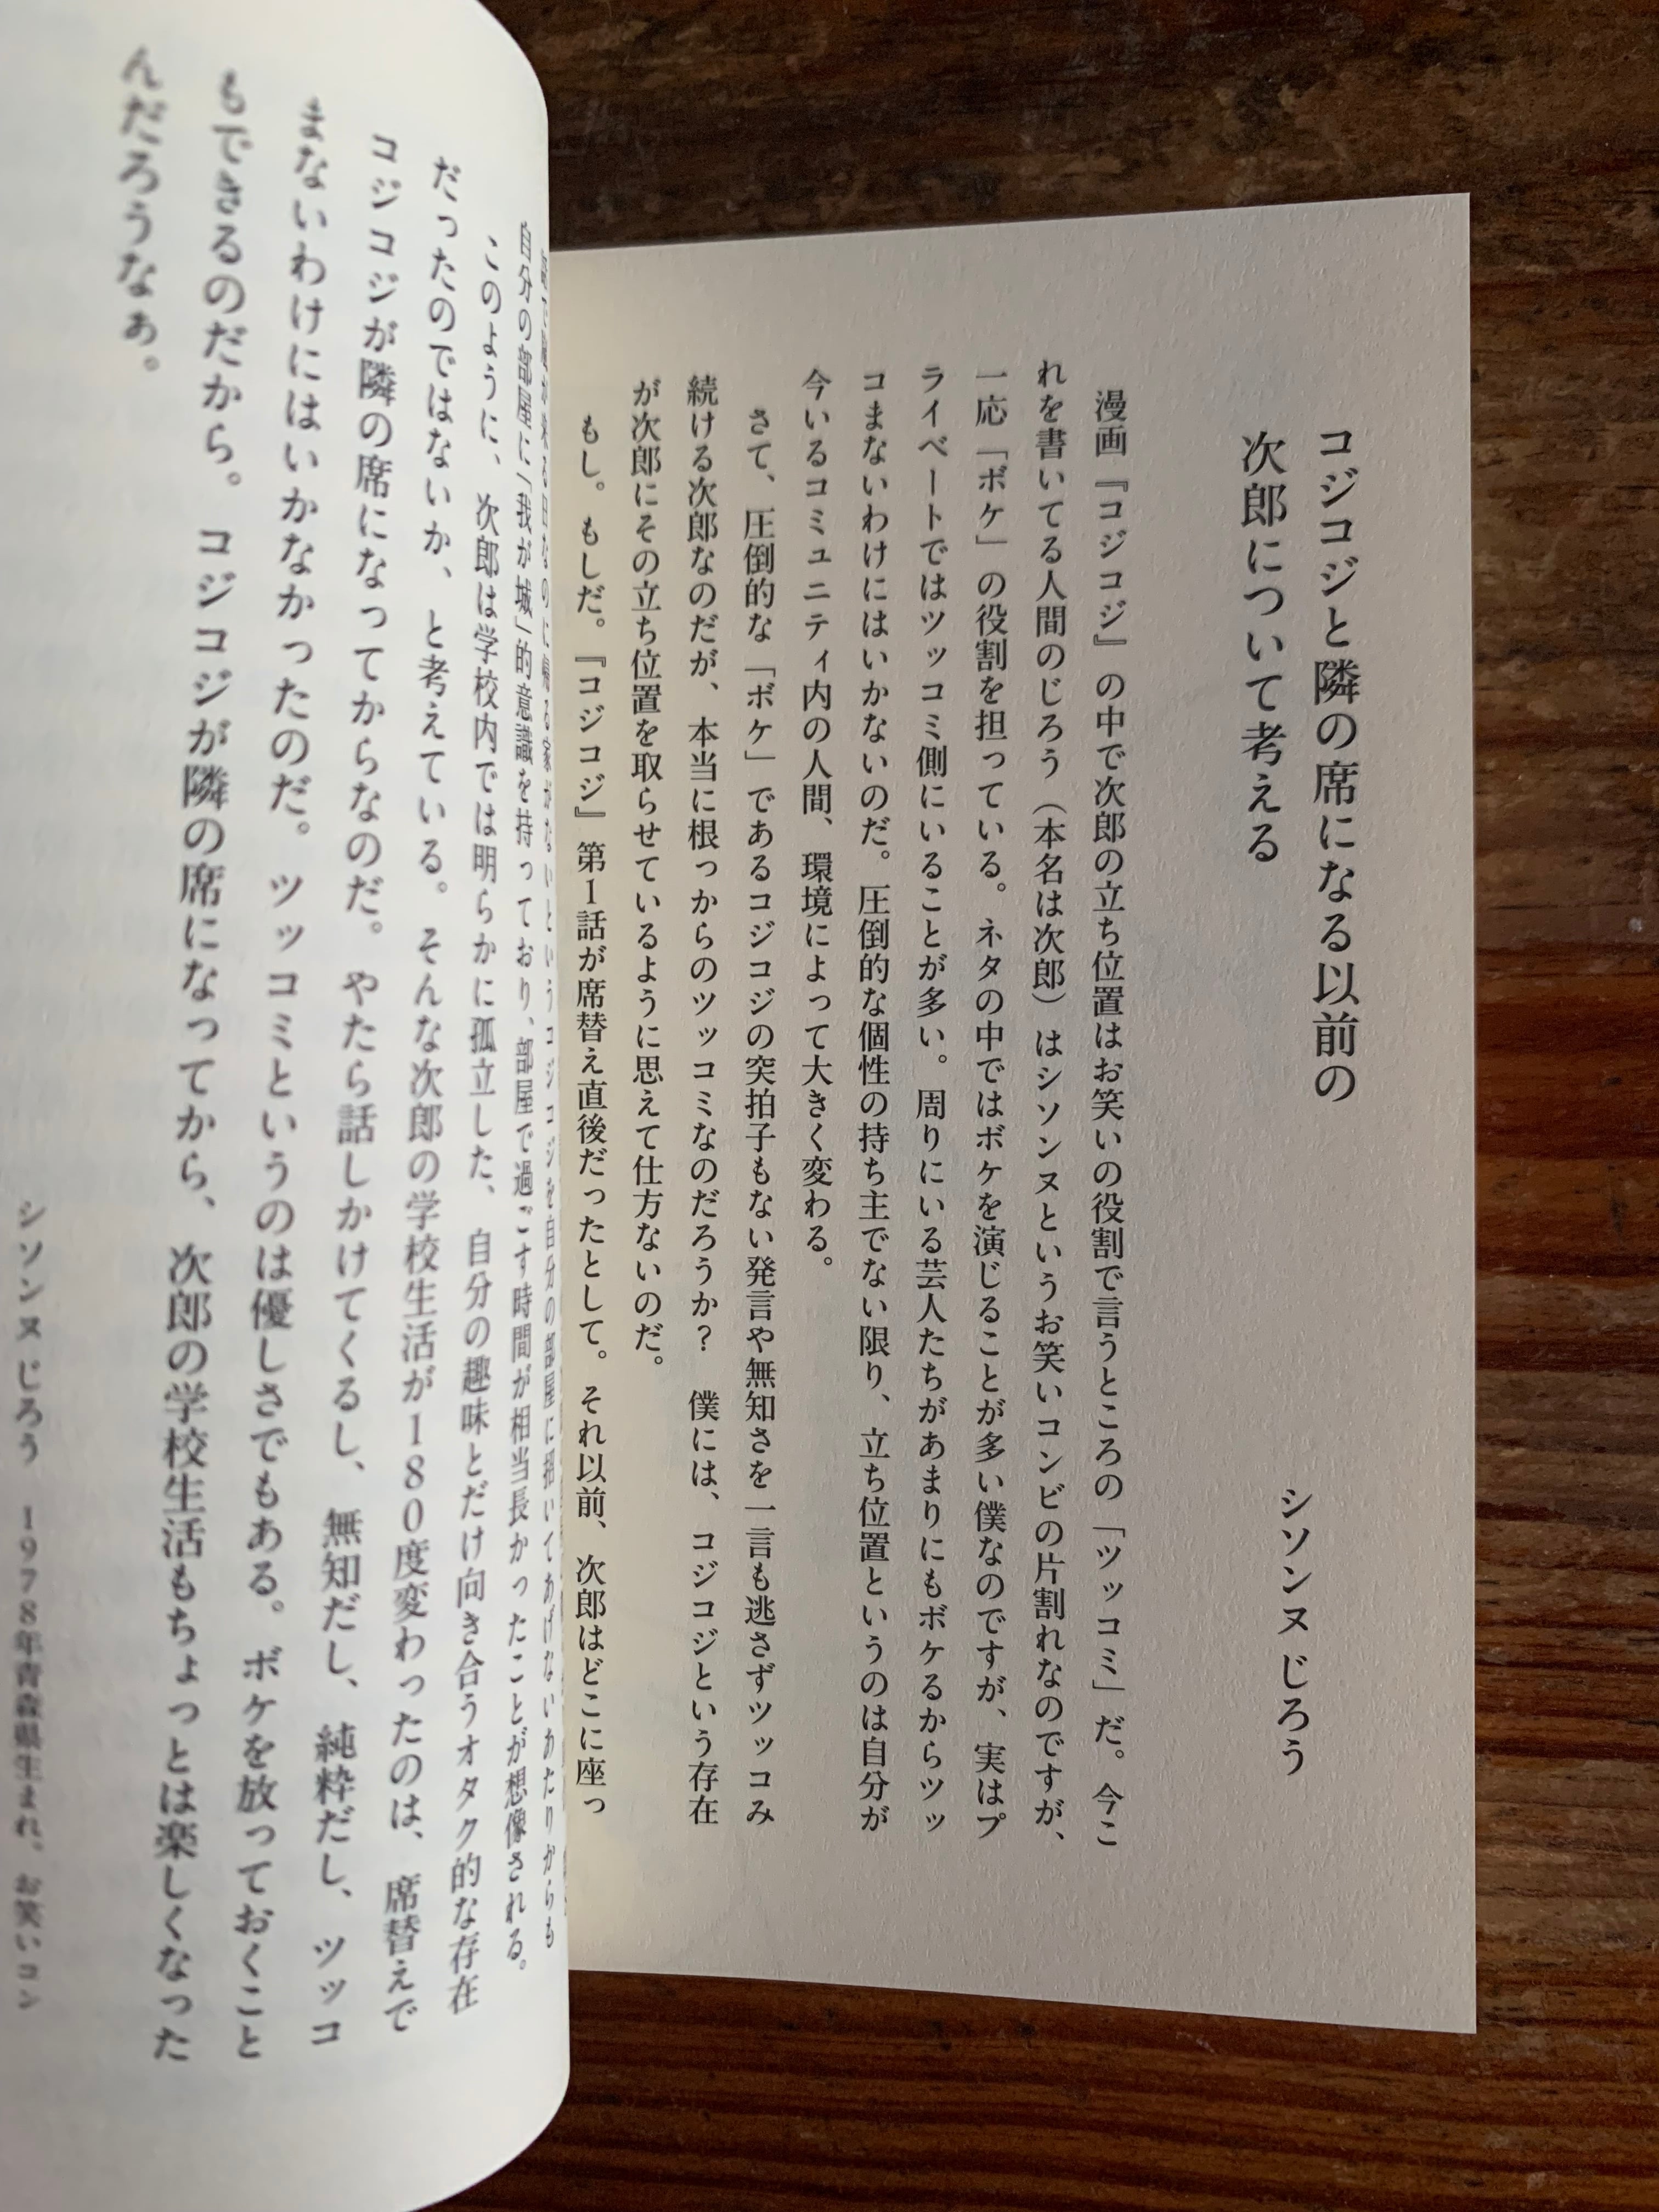 コジコジと隣の席になる以前の
次郎について考える
シソンヌ じろう
漫画『コジコジ』の中で次郎の立ち位置はお笑いの役割で言うところの「ツッコミ」だ。今こ
れを書いてる人間のじろう（本名は次郎）はシソンヌというお笑いコンビの片割れなのですが、
一応「ボケ」の役割を担っている。ネタの中ではボケを演じることが多い僕なのですが、実はプ
ライベートではツッコミ側にいることが多い。周りにいる芸人たちがあまりにもボケるからツッ
コまないわけにはいかないのだ。圧倒的な個性の持ち主でない限り、立ち位置というのは自分が
今いるコミュニティ内の人間、環境によって大きく変わる。
さて、圧倒的な「ボケ」であるコジコジの突拍子もない発言や無知さを一言も逃さずツッコみ
続ける次郎なのだが、本当に根っからのツッコミなのだろうか？　僕には、コジコジという存在
が次郎にその立ち位置を取らせているように思えて仕方ないのだ。
もし。もしだ。『コジコジ』第1話が席替え直後だったとして。それ以前、次郎はどこに座っ
家がないというコジコジを自分の部屋に招いてあげないあたりからも
自分の部屋に「我が城」的意識を持っており、部屋で過ごす時間が相当長かったことが想像される。
このように、次郎は学校内では明らかに孤立した、自分の趣味とだけ向き合うオタク的な存在
だったのではないか、と考えている。そんな次郎の学校生活が180度変わったのは、席替えで
コジコジが隣の席になってからなのだ。やたら話しかけてくるし、無知だし、純粋だし、ツッコ
まないわけにはいかなかったのだ。ツッコミというのは優しさでもある。ボケを放っておくこと
もできるのだから。コジコジが隣の席になってから、次郎の学校生活もちょっとは楽しくなった
んだろうなぁ。
シソンヌ じろう　1978年青森県生まれ。お笑いコン